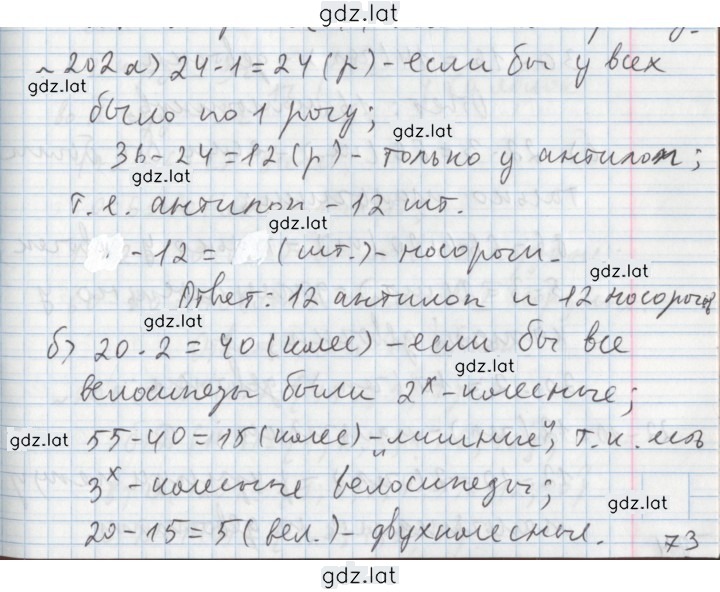 gdz.lat
№ 202 а) 24·1=24 (р) - если бы у всех
gdz.lat
было по 1 рогу;
gdz.lat
36-24=12(р) - только у антилоп;
gdz.lat
т.е. антилоп - 12 шт.
gdz.lat
-12= (шт.) - носороги.
gdz.lat
Ответ: 12 антилоп и 12 носорогов
gdz.lat
б) 20·2=40 (колес) - если бы все
gdz.lat
велосипеды были 2х-колесные;
gdz.lat 55-40=15(колес) - „лишние“, т.к. есть
3х-колесные велосипеды;
gdz.lat
20-15=5(вел.) - двухколесные.
73
gdz.lat